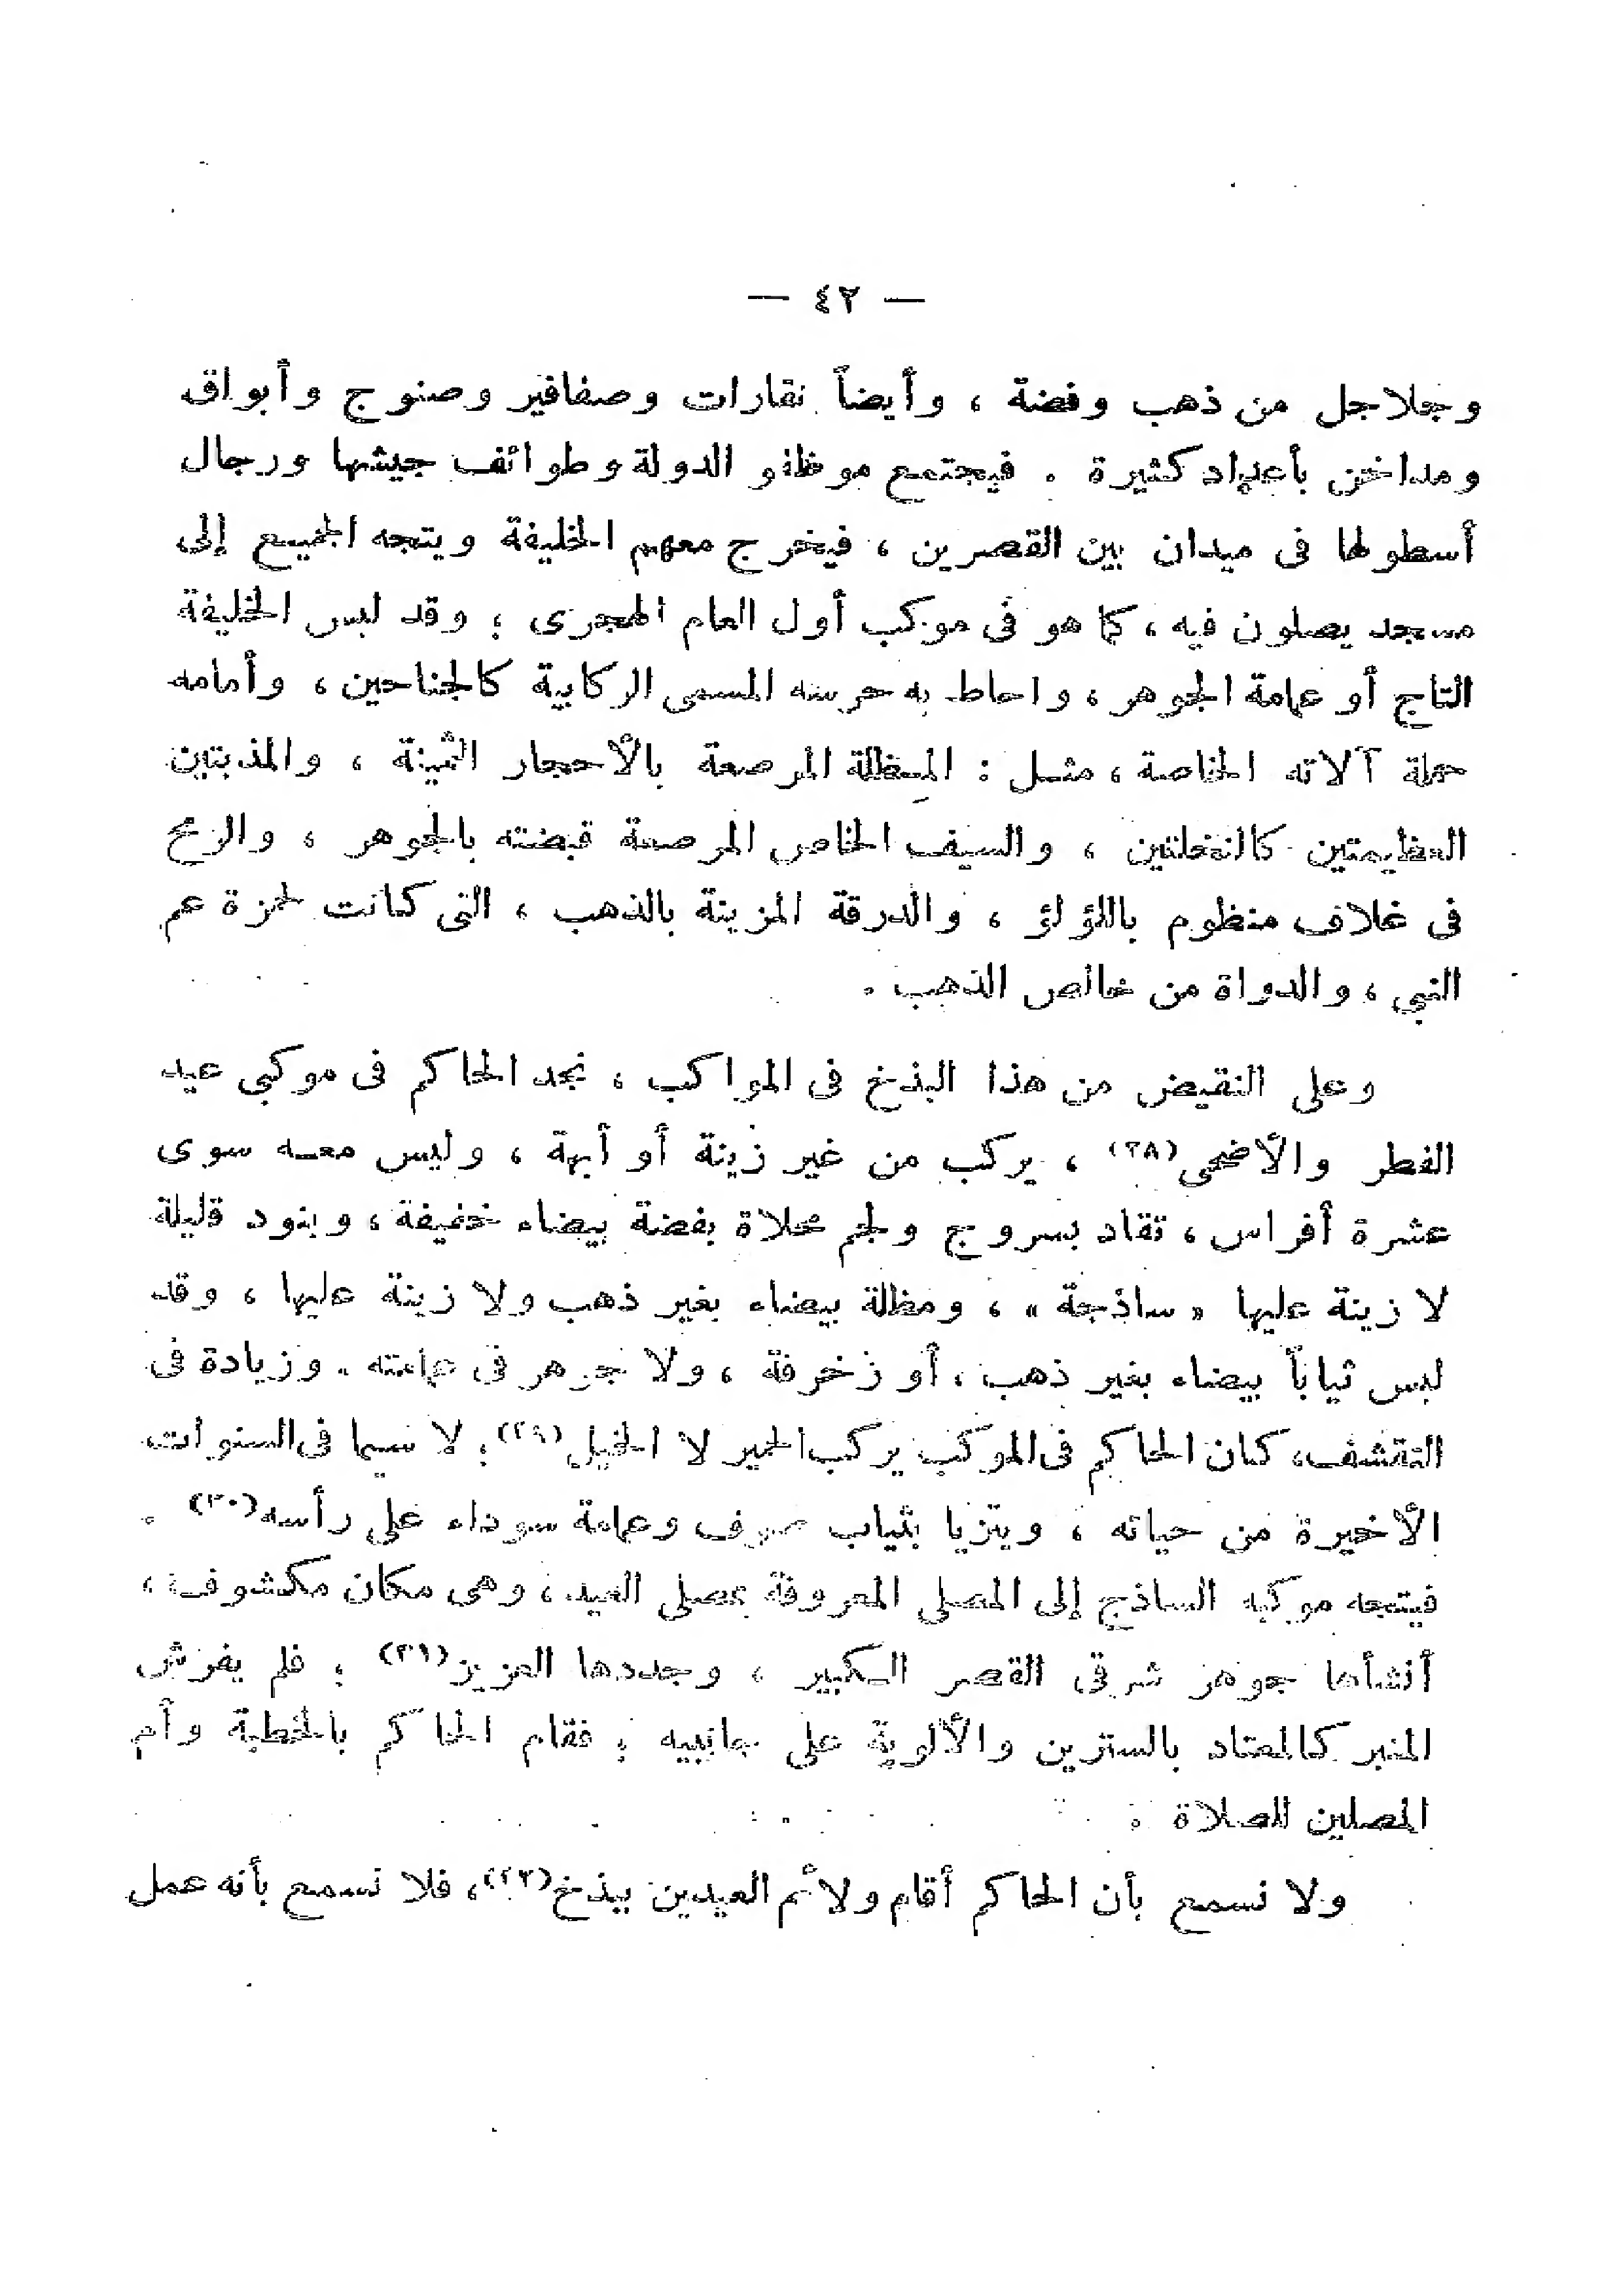 — ٤٢ —
وجلاجل من ذهب وفضة ، وأيضاً نقارات وصفافير وصنوج وأبواق
ومداخن بأعداد كثيرة . فيجتمع موظفو الدولة وطوائف جيشها ورجال
أسطولها فى ميدان بين القصرين ، فيخرج معهم الخليفة ويتجه الجميع إلى
مسجد يصلون فيه ، كما هو فى موكب أول العام الهجرى ؛ وقد لبس الخليفة
التاج أو عمامة الجوهر ، واحاط به حرسه المسمى الركابية كالجناحين ، وأمامه
حملة آلاته الخاصة ، مثل : المِظلة المرصعة بالأحجار الثمينة ، والمذبتين
العظيمتين كالنخلتين ، والسيف الخاص المرصعة قبضته بالجوهر ، والرمح
فى غلاف منظوم باللؤلؤ ، والدرقة المزينة بالذهب ، التى كانت لحمزة عم
النبي ، والدواة من خالص الذهب .
وعلى النقيض من هذا البذخ فى المواكب ، نجد الحاكم فى موكبي عيد
الفطر والأضحى(٢٨) ، يركب من غير زينة أو أبهة ، وليس معه سوى
عشرة أفراس ، تقاد بسروج ولجم محلاة بفضة بيضاء خفيفة ، وبنود قليلة
لا زينة عليها « ساذجة » ، ومظلة بيضاء بغير ذهب ولا زينة عليها ، وقد
لبس ثياباً بيضاء بغير ذهب ، أو زخرفة ، ولا جوهر فى عمامته . وزيادة فى
التقشف، كان الحاكم فى الموكب يركب الحمير لا الخيل(٢٩) ؛ لا سيما فى السنوات
الأخيرة من حياته ، ويتزيا بثياب صوف وعمامة سوداء على رأسه(٣٠) .
فيتجه موكبه الساذج إلى المصلى المعروفة بمصلى العيد ، وهى مكان مكشوف ،
أنشأها جوهر شرقى القصر الكبير ، وجددها العزيز(٣١) ؛ فلم يفرش
المنبر كالمعتاد بالسترين والألوية على جانبيه ؛ فقام الحاكم بالخطبة وأم
المصلين للصلاة .
ولا نسمع بأن الحاكم أقام ولائم العيدين ببذخ(٣٢)، فلا نسمع بأنه عمل